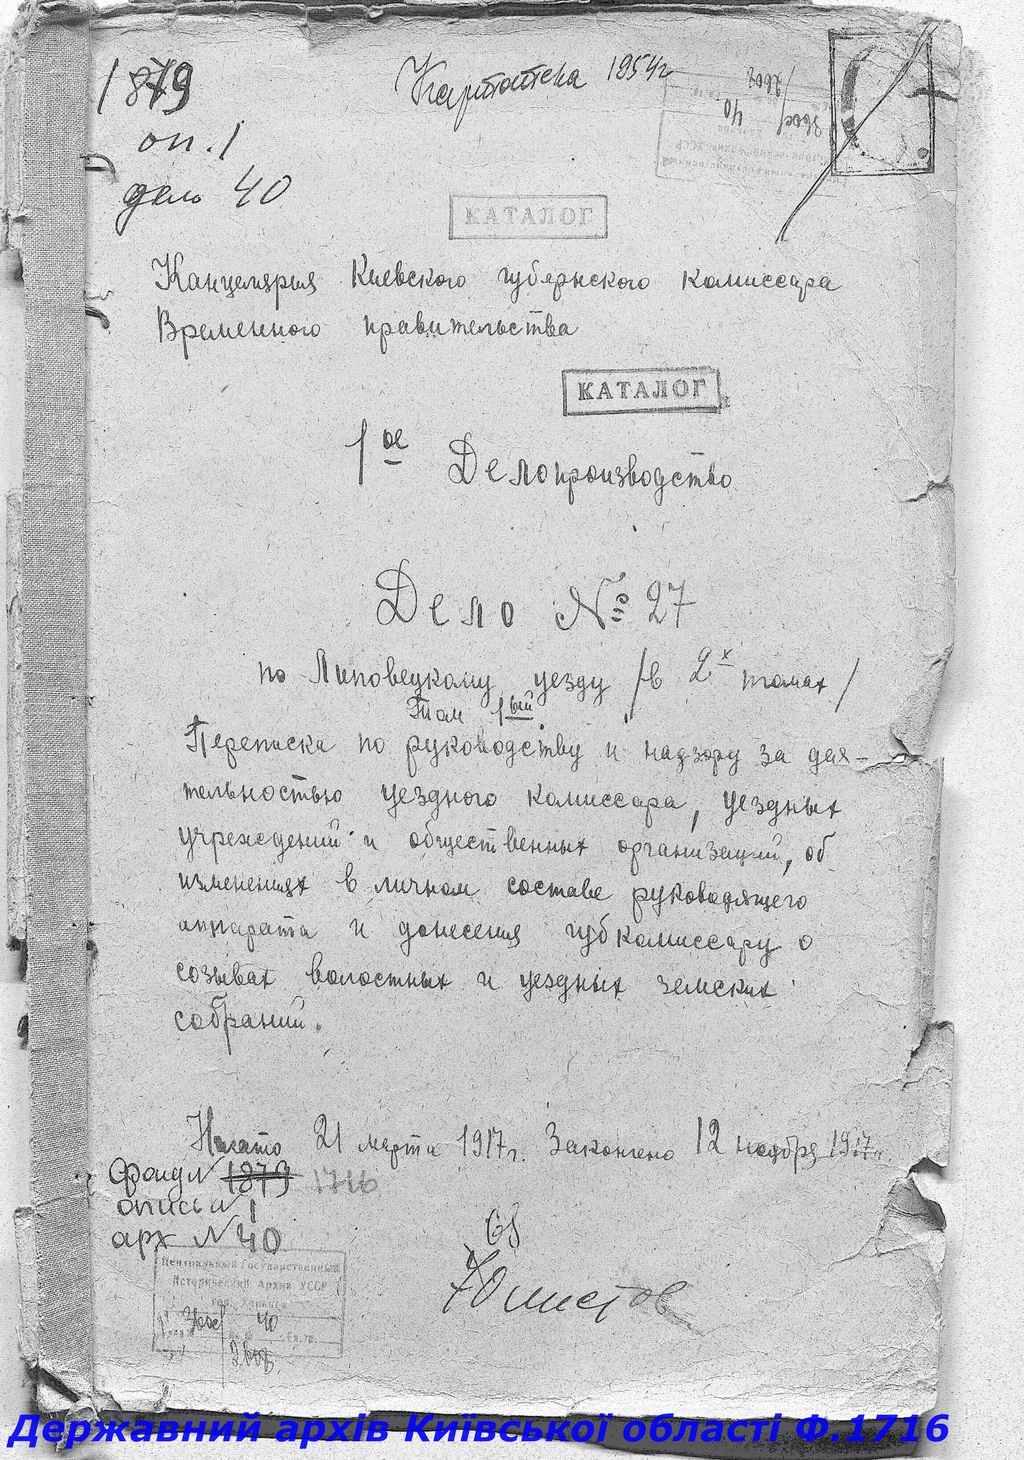 1879
оп. 1
дело 40
Картотека 1954г
КАТАЛОГ
Канцелярия Киевского губернского комиссара
Временного правительства
КАТАЛОГ
1ое Делопроизводство
Дело № 27
по Липовецкому уезду /в 2х томах/
Том 1ый.
Переписка по руководству и надзору за дея-
тельностью уездного комиссара, уездных
учреждений и общественных организаций, об
изменениях в личном составе руководящего
аппарата и донесения губкомиссару о
созывах волостных и уездных земских
собраний.
Начато 21 марта 1917г. Закончено 12 ноября 1917г.
Фонд № 1879 1716
опись № 1
арх № 40
70 листов
Центральный Государственный
Исторический Архив УССР
40
Державний архів Київської області Ф.1716